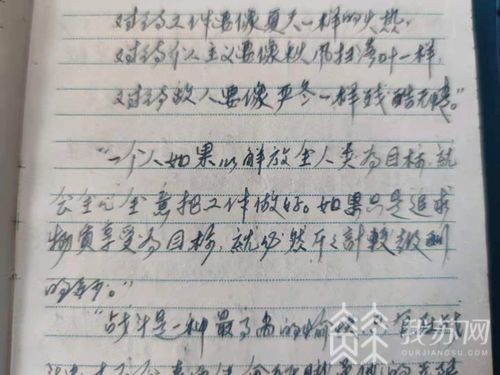 对待工作要像夏天一样的火热,
对待个人主义要像秋风扫落叶一样,
对待敌人要像严冬一样残酷无情。"
"一个人如果以解放全人类为目标,就
会全心全意把工作做好。如果只是追求
物质享受为目标,就必然斤斤計較報酬
的多少。"
"战斗是一种最高尚的愉快
我苏网
OURJIANGSU.COM